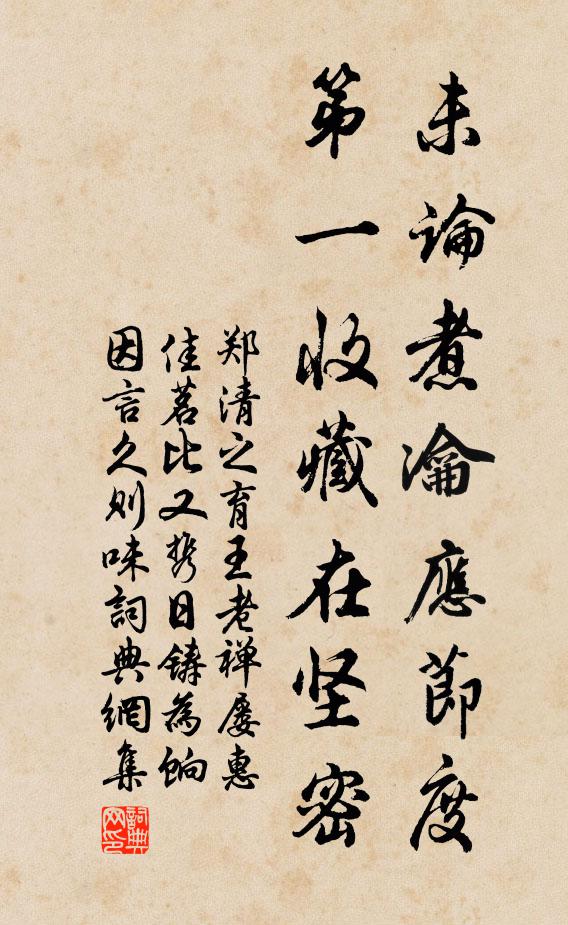 未論煮瀹應節度
第一收藏在坚密
郑清之育王老禅屡惠
佳茗比又携日铸為餉
因言久则味詞典網集
詞典網印